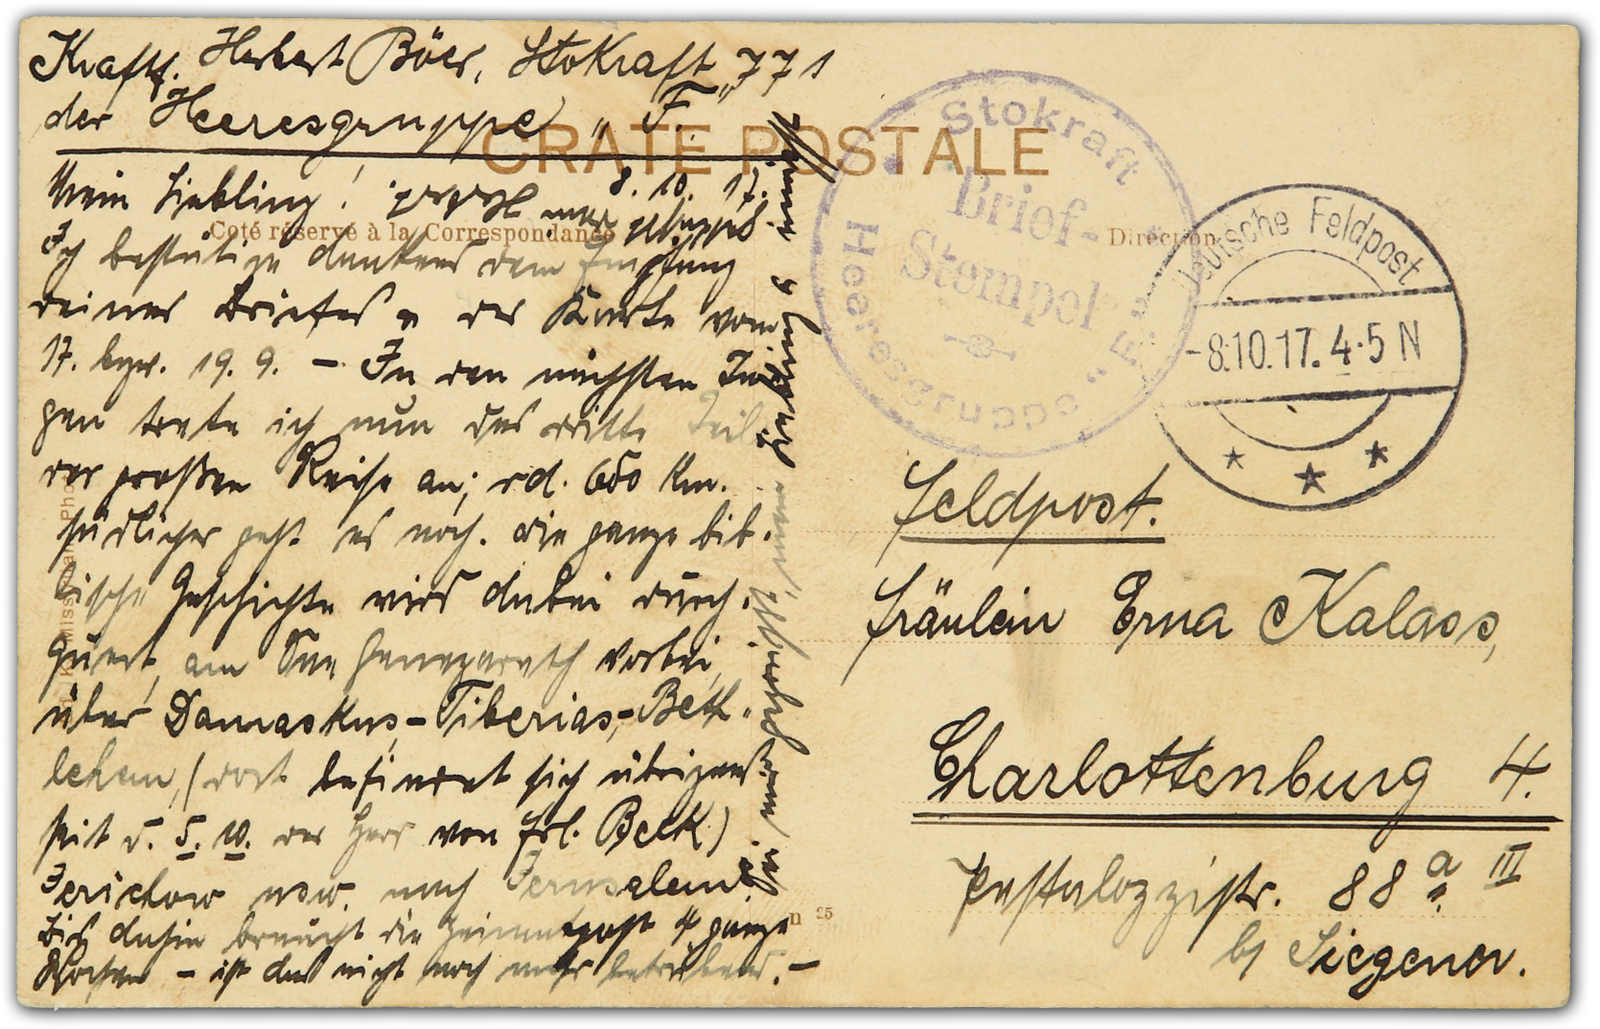 Kraftf. Herbert Böer, Stokraft „771
der Heeresgruppe „F."
CRATE POSTALE
Coté réservé à la Correspondance
Direction
Mein Liebling! 8. 10. 17.
Ich bestätige dankend den Empfang
deines Briefes u der Karte vom
17. bzw. 19. 9. – In den nächsten Ta-
gen trete ich nun das dritte Teil
der großen Reise an; rd. 650 km.
südlicher geht es noch. Die ganze bib-
lische Geschichte wird dabei durch-
quert, am See Genezareth vorbei,
über Damaskus,-Tiberias,-Beth-
lehem, (dort befindet sich übrigens
seit d. 5. 10. der Herr von Frl. Beck)
Jerichow usw. nach Jerusalem.
Bis dahin braucht die Heimatpost 4 ganze
Wochen – ist das nicht noch mehr betrübend. –
Stokraft
Brief-
Stempel
Heeresgruppe „F"
Deutsche Feldpost
-8.10.17. 4-5 N
Feldpost.
Fräulein Erna Kalass,
Charlottenburg 4.
Pestalozzistr. 88 a III
b/ Siegener.
25